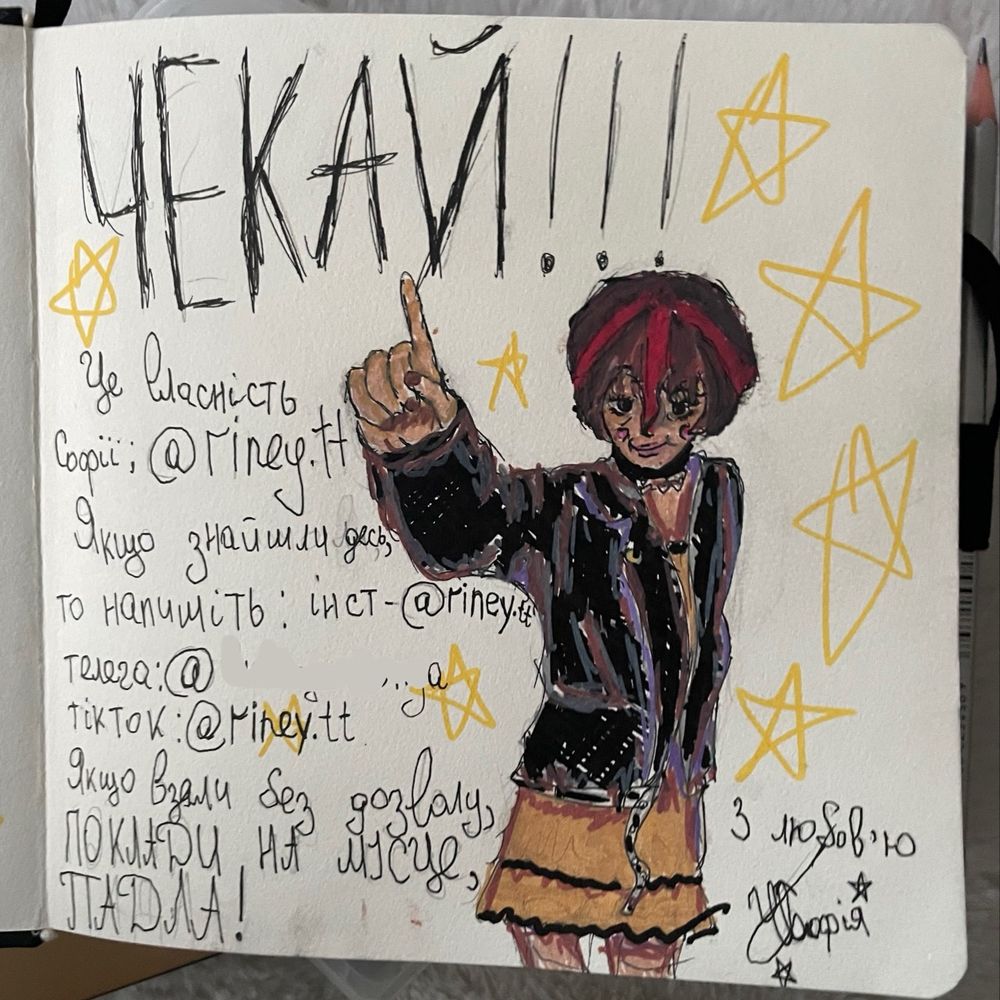 ЧЕКАЙ!!!
Це власність
Софії; @riney.tt
Якщо знайшли десь,
то напишіть: інст-@riney.tt
телега:@
тікток:@riney.tt
Якщо взяли без дозволу,
ПОКЛАДИ НА МІСЦЕ,
ПАДЛА!
З любов'ю
Софія